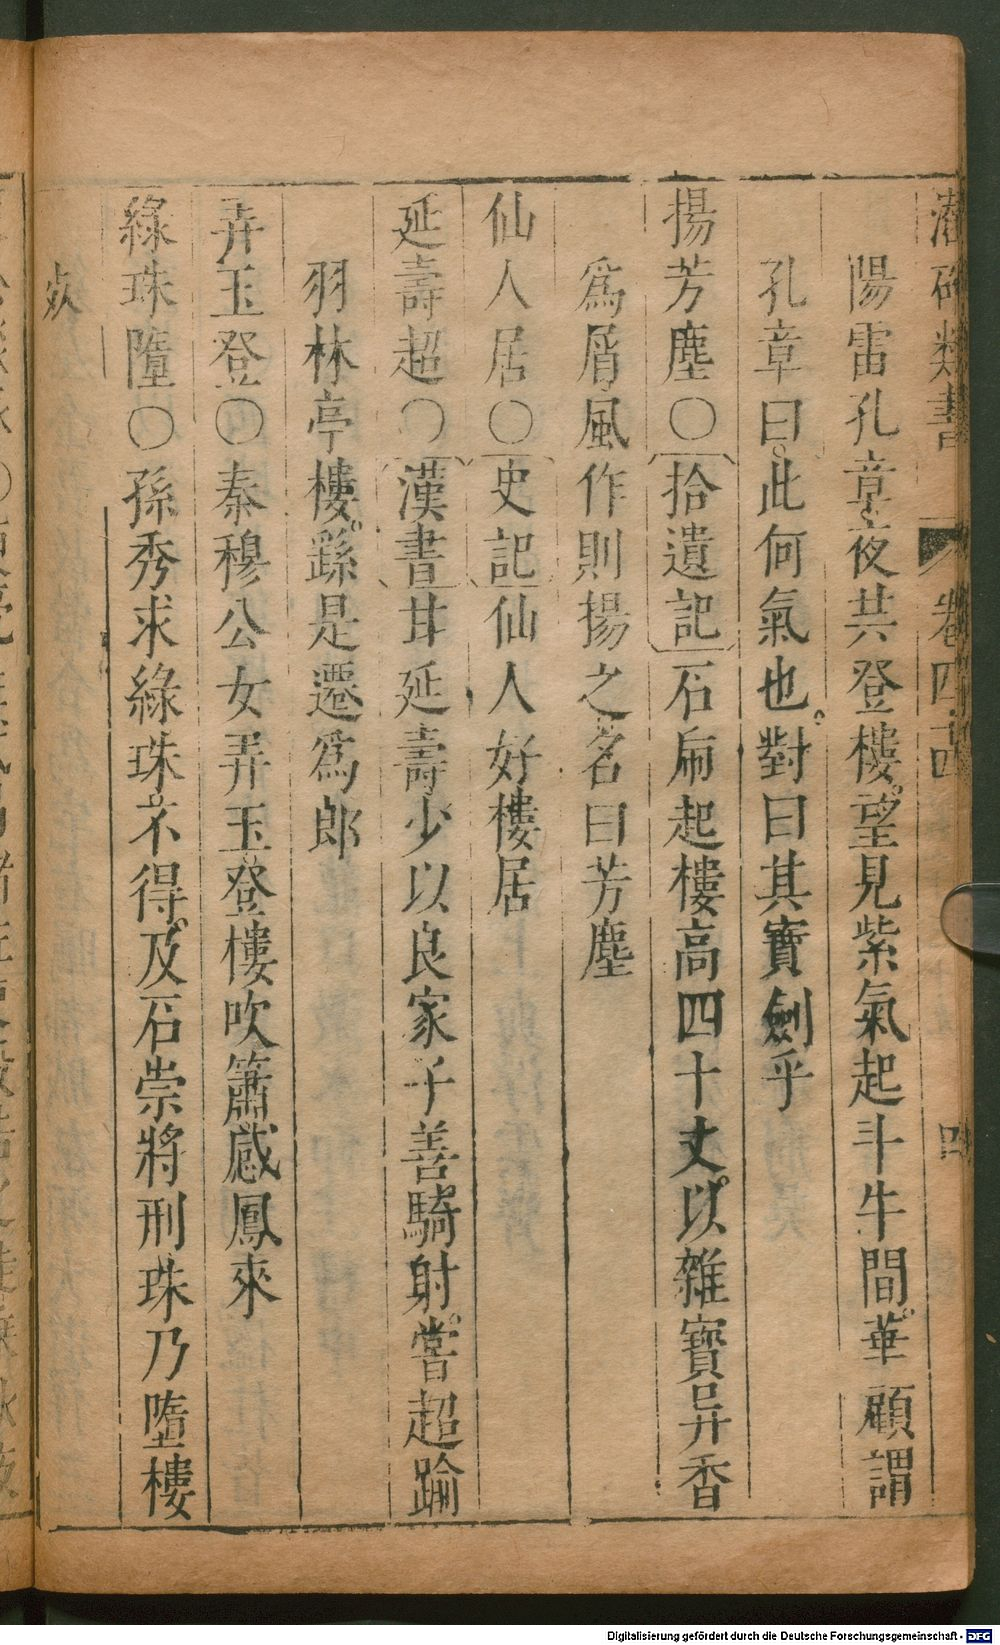 潛確類書 卷四十四 四
陽雷孔章夜共登樓。望見紫氣起斗牛間。華顧謂
孔章曰。此何氣也。對曰其寶劍乎
揚芳塵〇拾遺記石崩起樓高四十丈。以雜寶异香
爲屑。風作則揚之名曰芳塵
仙人居〇史記仙人好樓居
延壽超〇漢書甘延壽少以良家子善騎射。嘗超踰
羽林亭樓。繇是遷爲郎
弄玉登〇秦穆公女弄玉登樓吹簫感鳳來
綠珠墮〇孫秀求綠珠不得。及石崇將刑珠乃墮樓
Digitalisierung gefördert durch die Deutsche Forschungsgemeinschaft - DFG